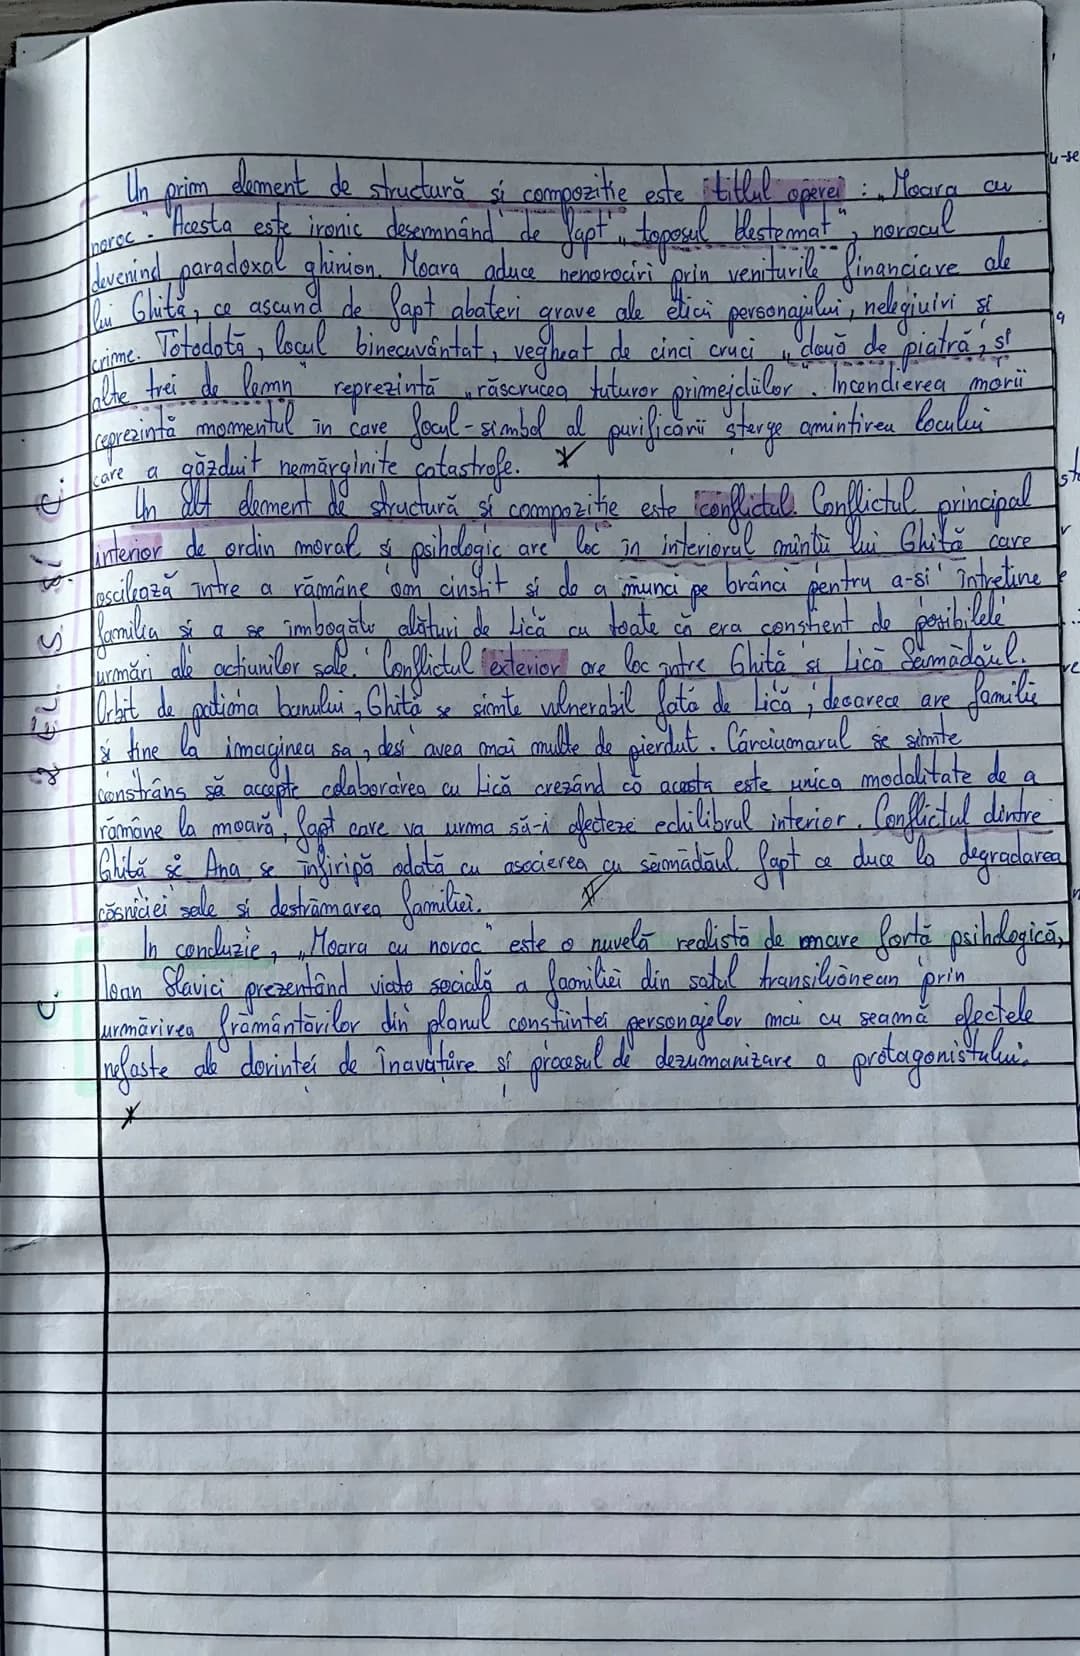 Un prim element de structură și compoziție este titlul operei : „Moara cu
noroc". Acesta este ironic desemnând de fapt „toposul blestemat", norocul
devenind paradoxal ghinion. Moara aduce nenorociri prin veniturile financiare ale
lui Ghiță, ce ascund de fapt abateri grave ale eticii personajului, nelegiuiri și
crime. Totodată, locul binecuvântat, vegheat de cinci cruci „două de piatră, și
alte trei de lemn" reprezintă „răscrucea tuturor primejdiilor". Incendierea morii
reprezintă momentul în care focul-simbol al purificării șterge amintirea locului
care a găzduit nemărginite catastrofe.
Un alt element de structură și compoziție este conflictul. Conflictul principal
interior de ordin moral și psihologic are loc în interiorul minții lui Ghiță care
oscilează între a rămâne om cinstit și de a munci pe brânci pentru a-și întreține
familia și a se îmbogăți alături de Lică cu toate că era conștient de posibilele
urmări ale acțiunilor sale. Conflictul exterior are loc între Ghiță și Lică Sămădăul.
Orbit de patima banului, Ghiță se simte vulnerabil față de Lică, deoarece are familie
și ține la imaginea sa, deși avea mai multe de pierdut. Cârciumarul se simte
constrâns să accepte colaborarea cu Lică crezând că acesta este unica modalitate de a
rămâne la moară, fapt care va urma să-i afecteze echilibrul interior. Conflictul dintre
Ghiță și Ana se înfiripă odată cu asocierea cu sămădăul fapt ce duce la degradarea
căsniciei sale și destrămarea familiei.
În concluzie, „Moara cu noroc" este o nuvelă realistă de mare forță psihologică,
Ioan Slavici prezentând viața socială a familiei din satul transilvănean prin
urmărirea frământărilor din planul conștiinței personajelor mai cu seamă efectele
nefaste ale dorinței de înavuțire și procesul de dezumanizare a protagonistului.
2 EL. S. și C.
C.